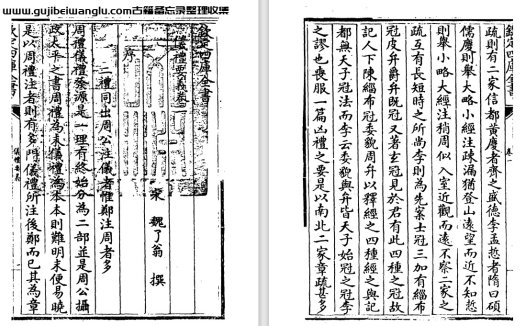 www.gujibeiwanglu.com古籍备忘录整理收集
欽定四庫全書
儀禮要義卷一
宋 魏了翁 撰
二禮同出周公注儀者惟鄭注周者多
周禮儀禮發源是一理有終始分為二部並是周公攝
政太平之書周禮為末儀禮為本本則難明末便易曉
是以周禮注者則有多門儀禮所注後鄭而已其為章
儀禮要義
疏則有二家信都黃慶者齊之盛德李孟悊者隋曰碩
儒慶則舉大略小經注疎漏猶登山遠望而近不知悊
則舉小略大經注稍周似入室近觀而遠不察二家之
疏互有長短時之所尚李則為先案士冠三加有緇布
冠皮弁爵弁既冠又著玄冠見於君有此四種之冠故
記人下陳緇布冠委貌周弁以釋經之四種經之與記
都無天子冠法而李云委貌與弁皆天子始冠之冠李
之謬也喪服一篇凶禮之要是以南北二家章疏甚多